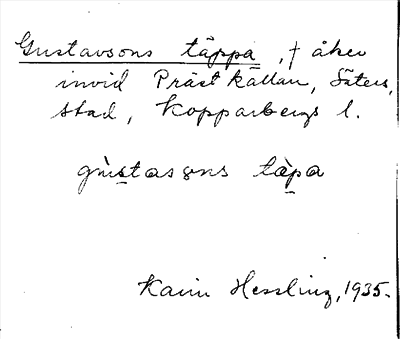 Gustavsons täppa, † åker
invid Prästkällan, Säters,
stad, Kopparbergs l.
gùstasons tàpa
Karin Hessling, 1935.